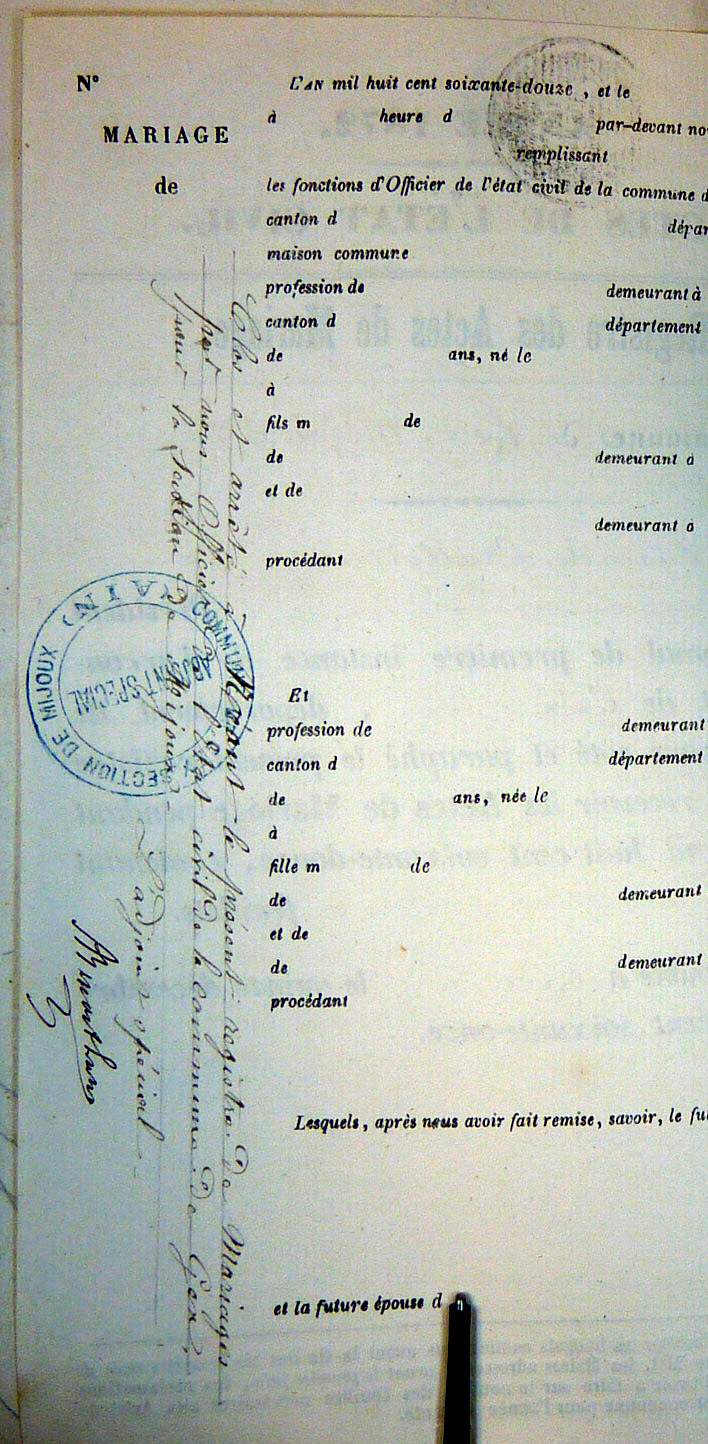 N°
MARIAGE
de
L'AN mil huit cent soixante-douze, et le
à heure d par-devant no
remplissant
les fonctions d'Officier de l'état civil de la commune d
canton d dépar
maison commune
profession de demeurant à
canton d département
de ans, né le
à
fils m de
de demeurant à
et de
demeurant à
procédant
Et
profession de demeurant
canton d département
de ans, née le
à
fille m de
de demeurant
et de
de demeurant
procédant
Lesquels, après nous avoir fait remise, savoir, le fu
et la future épouse d
Clos et arrêté à Néant le présent registre de Mariages
par nous Officier de l'état civil de la Commune de Gex,
pour la Section de Mijoux,
L'adjoint spécial
COMMUNE
(AIN)
SECTION DE MIJOUX
ADJOINT SPÉCIAL